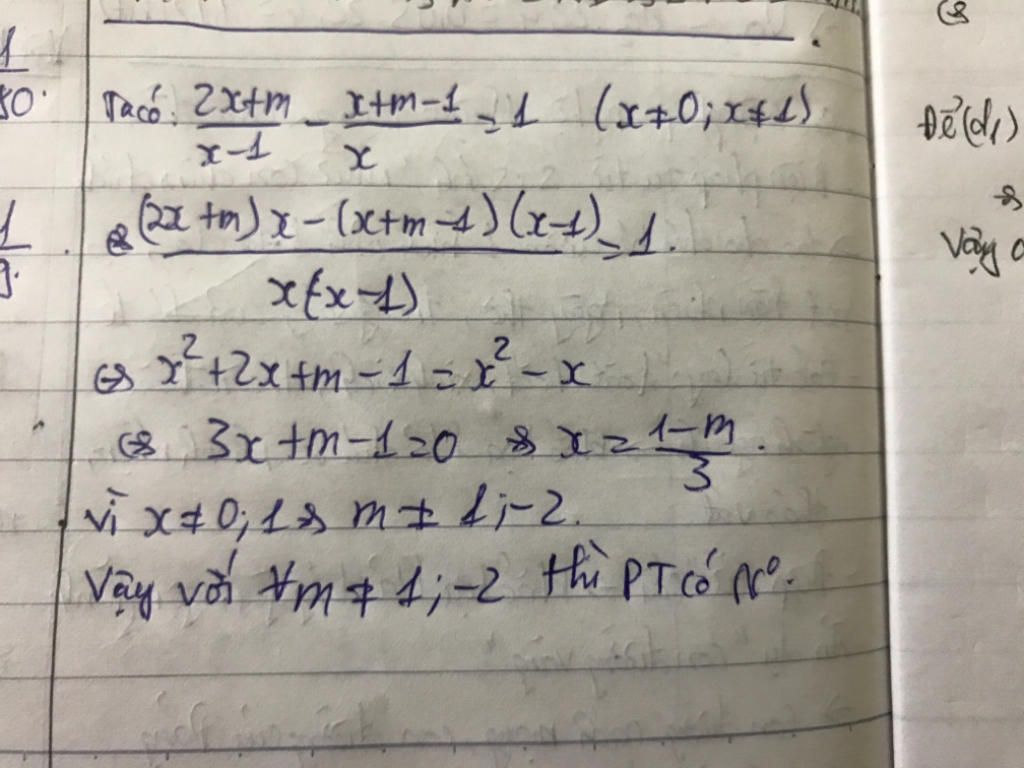 1/50.
Ta có: (2x+m)/(x-1) - (x+m-1)/x = 1 (x≠0; x≠1)
⇔ ((2x+m)x-(x+m-1)(x-1))/(x(x-1)) = 1.
1/9.
⇔ x²+2x+m-1=x²-x
⇔ 3x+m-1=0 ⇔ x=(1-m)/3.
vì x≠0;1 ⇔ m≠1;-2.
Vậy với ∀m≠1;-2 thì PT có N°.
⇔
Để (d₁)
⇔
Vậy